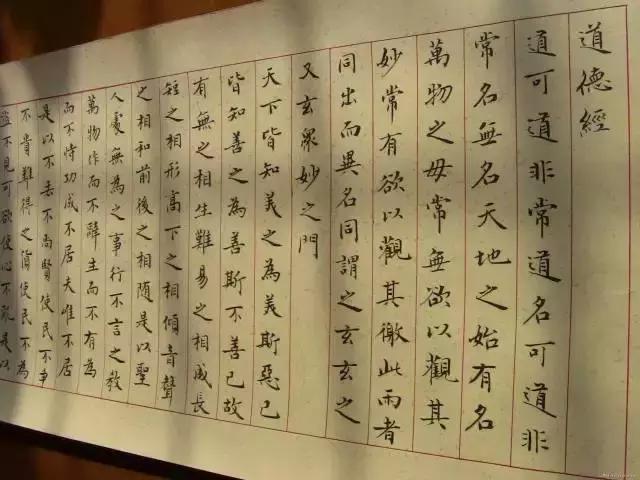 道德經
道可道非常道名可道非
常名無名天地之始有名
萬物之母常無欲以觀其
妙常有欲以觀其徼此兩者
同出而異名同謂之玄玄之
又玄眾妙之門
天下皆知美之為美斯惡已
皆知善之為善斯不善已故
有無之相生難易之相成長
短之相形高下之相傾音聲
之相和前後之相随是以聖
人處無為之事行不言之教
萬物作而不辭生而不有為
而不恃功成不居夫唯不居
是以不去不尚賢使民不爭
不貴難得之貨使民不為
盜不見可欲使心不亂是以